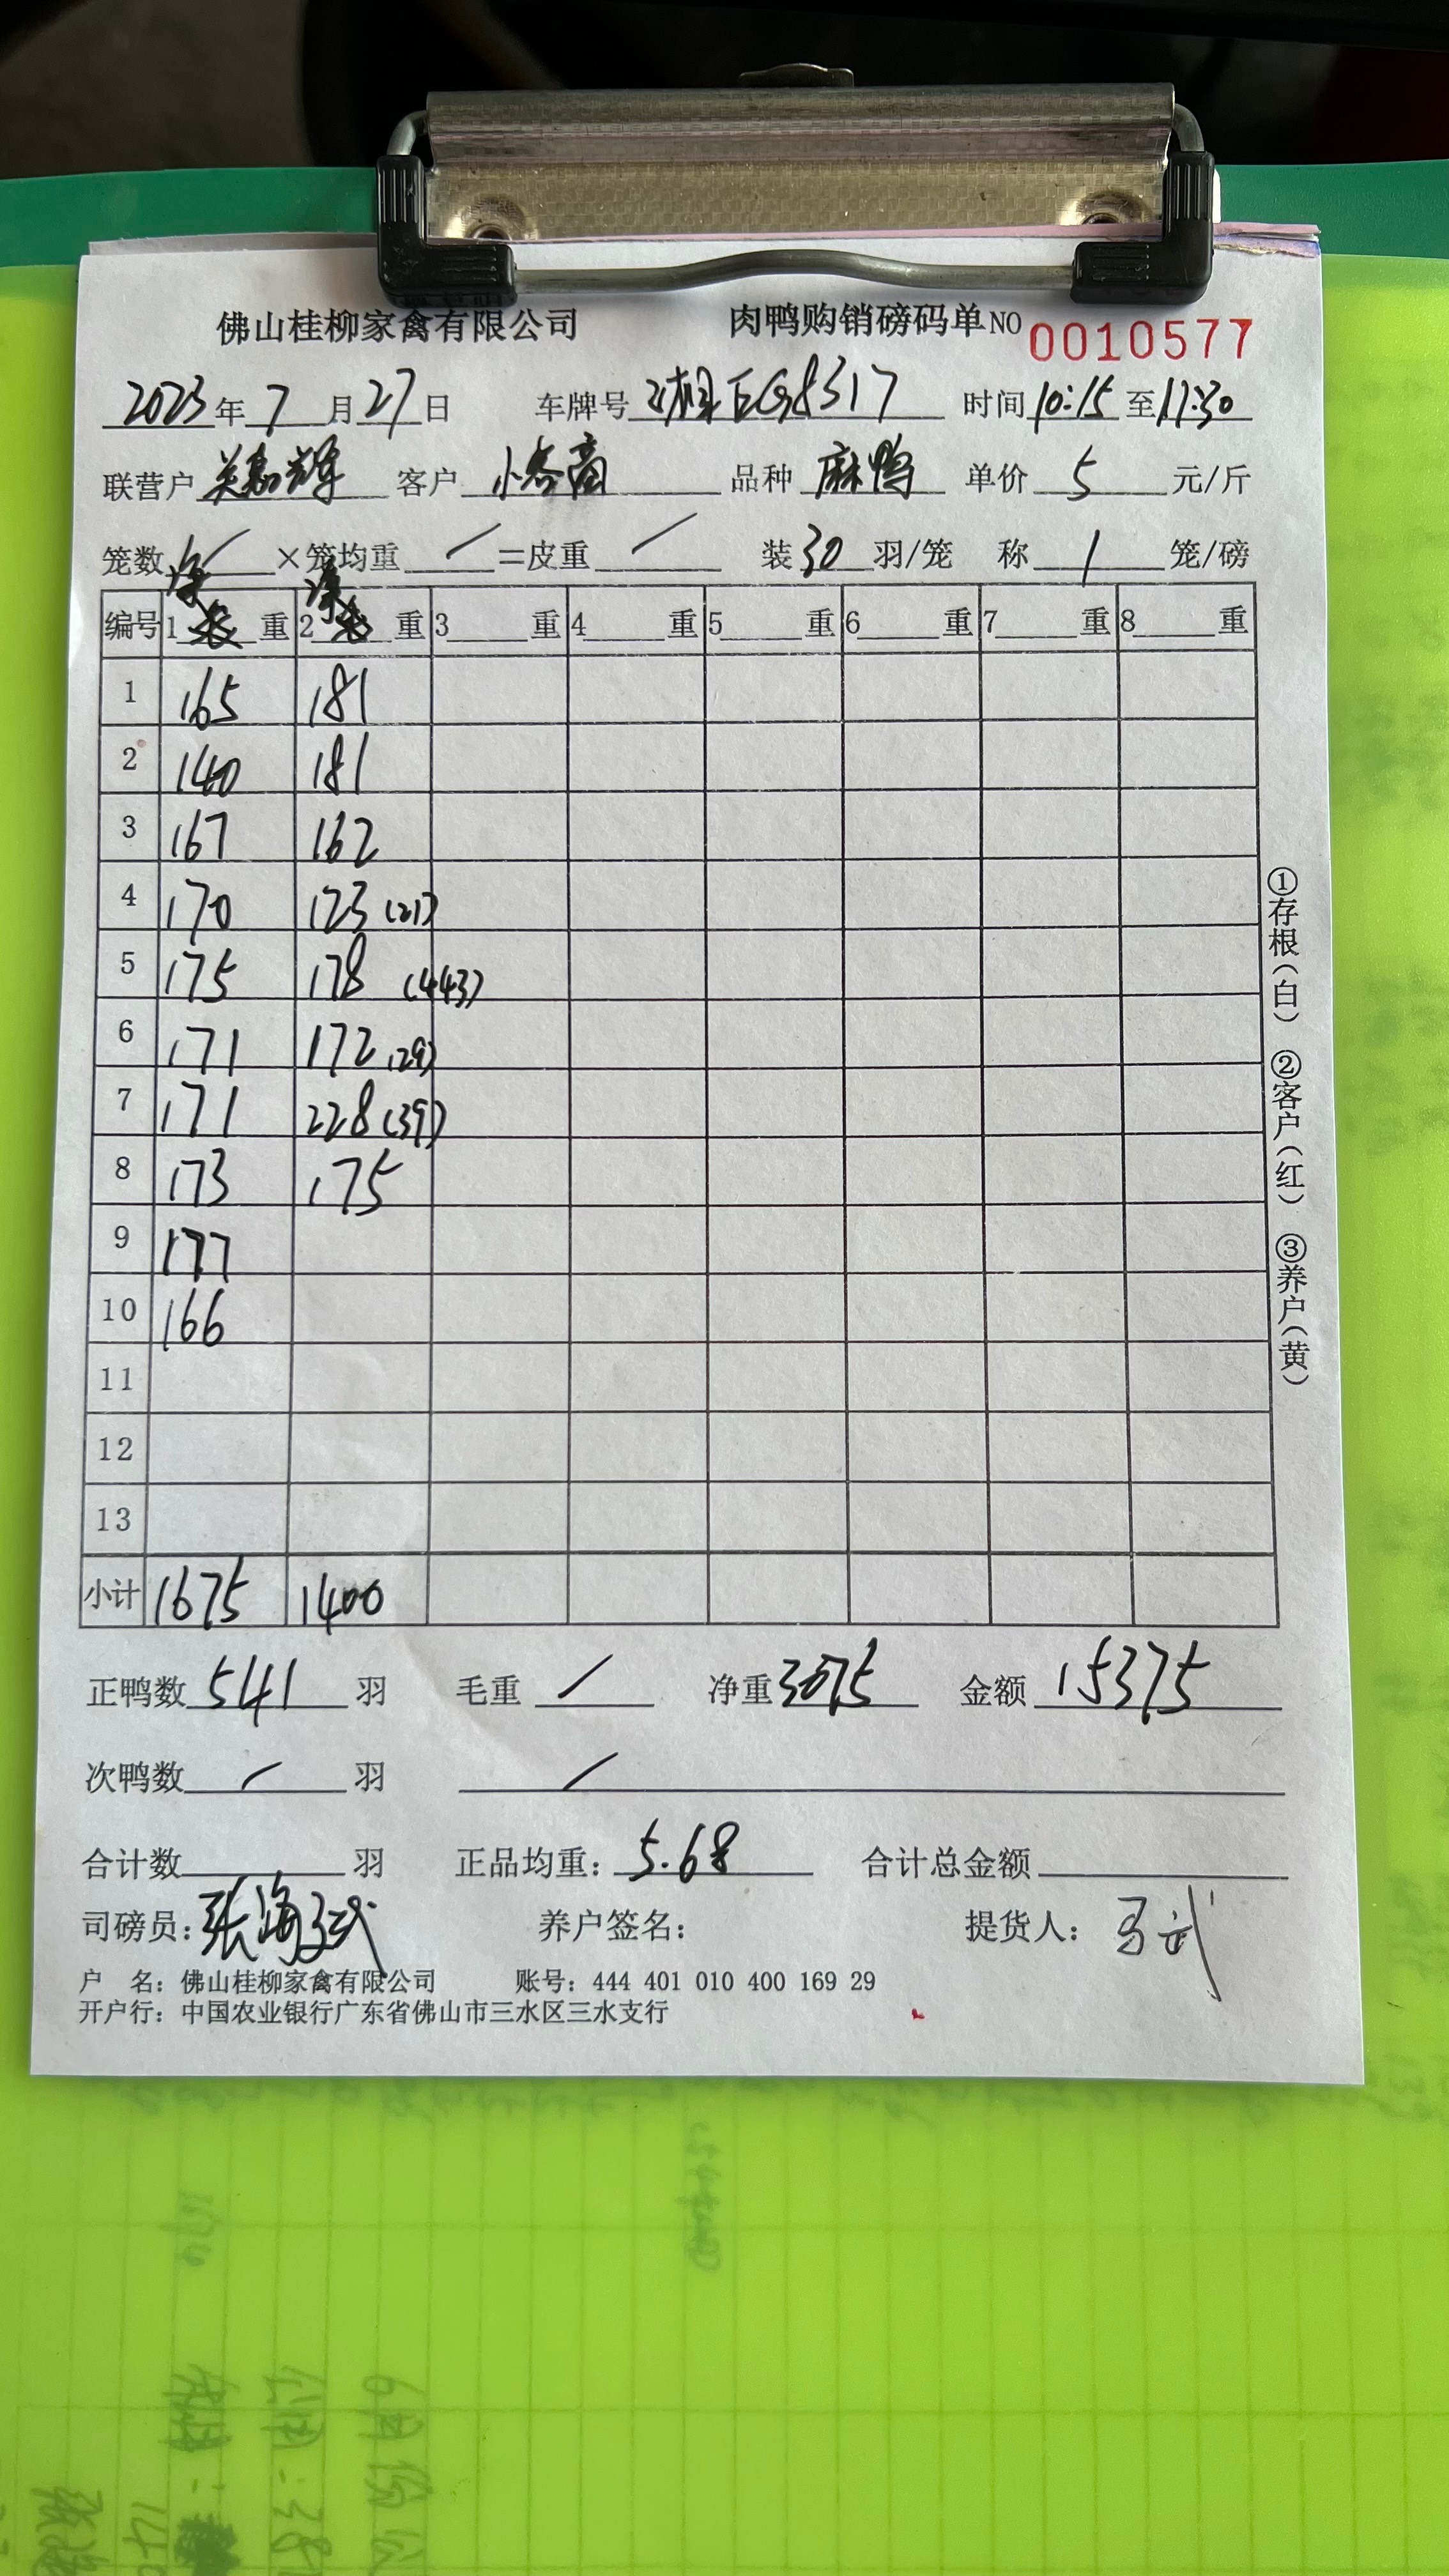 佛山桂柳家禽有限公司 肉鸭购销磅码单 NO 0010577
2023年7月27日 车牌号 G8317 时间10:15至11:30
联营户 辉 客户 小 品种 麻鸭 单价 5 元/斤
笼数 / ×笼均重 / =皮重 / 装30羽/笼 称 1 笼/磅
编号 1 净 重 2 净 重 3 重 4 重 5 重 6 重 7 重 8 重
1 165 181
2 140 181
3 167 162
4 170 123 (21)
5 175 178 (443)
6 171 172 (29)
7 171 228 (39)
8 173 175
9 177
10 166
11
12
13
小计 1675 1400
正鸭数 541 羽 毛重 / 净重3075 金额 15375
次鸭数 / 羽 /
合计数 羽 正品均重: 5.68 合计总金额
司磅员: 张海 养户签名: 提货人:
户 名: 佛山桂柳家禽有限公司 账号: 444 401 010 400 169 29
开户行: 中国农业银行广东省佛山市三水区三水支行
①存根(白) ②客户(红) ③养户(黄)